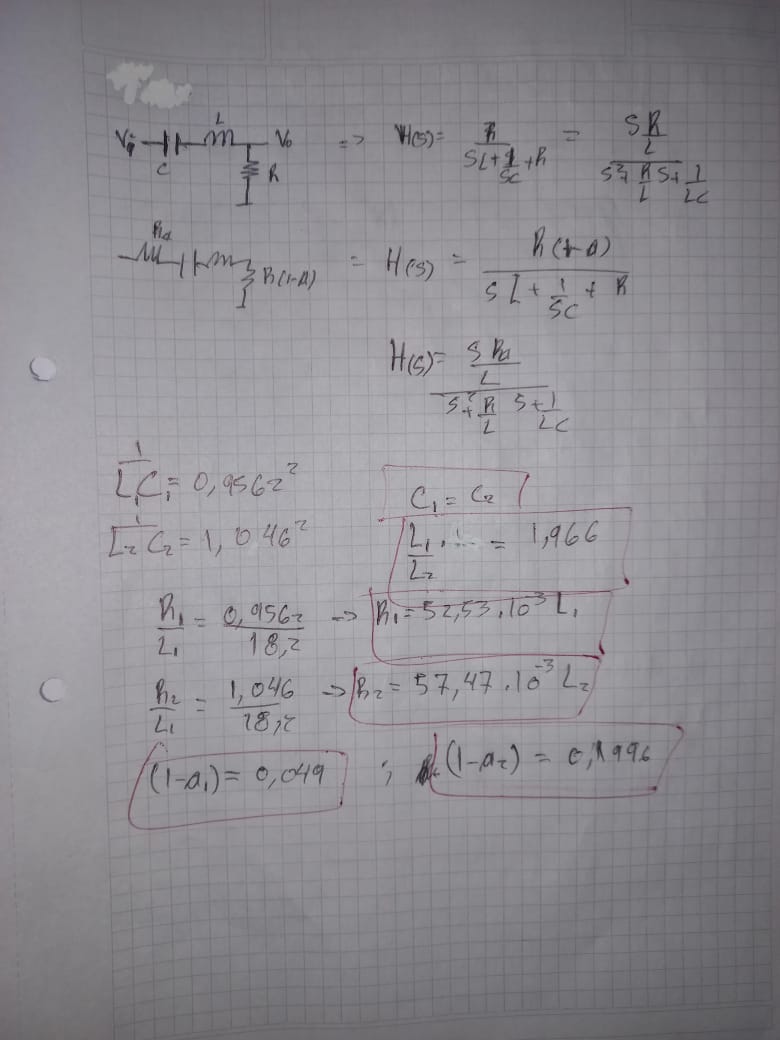 L
Vi C Vo R => H(s) = R / (SL + 1/SC + R) = (SR/L) / (S² + R/L S + 1/LC)
Ra R(1-a) = H(s) = R(1-a) / (SL + 1/SC + R)
H(s) = (S Ra/L) / (S² + R/L S + 1/LC)
1/L₁C₁ = 0,956z²
C₁ = C₂
1/L₂C₂ = 1,046²
L₁/L₂ · = 1,966
R₁/L₁ = 0,956z/18,2 -> R₁ = 52,53.10⁻³ L₁
R₂/L₁ = 1,046/18,2 -> R₂ = 57,47.10⁻³ L₂
(1-a₁) = 0,049 ; (1-a₂) = 0,1996